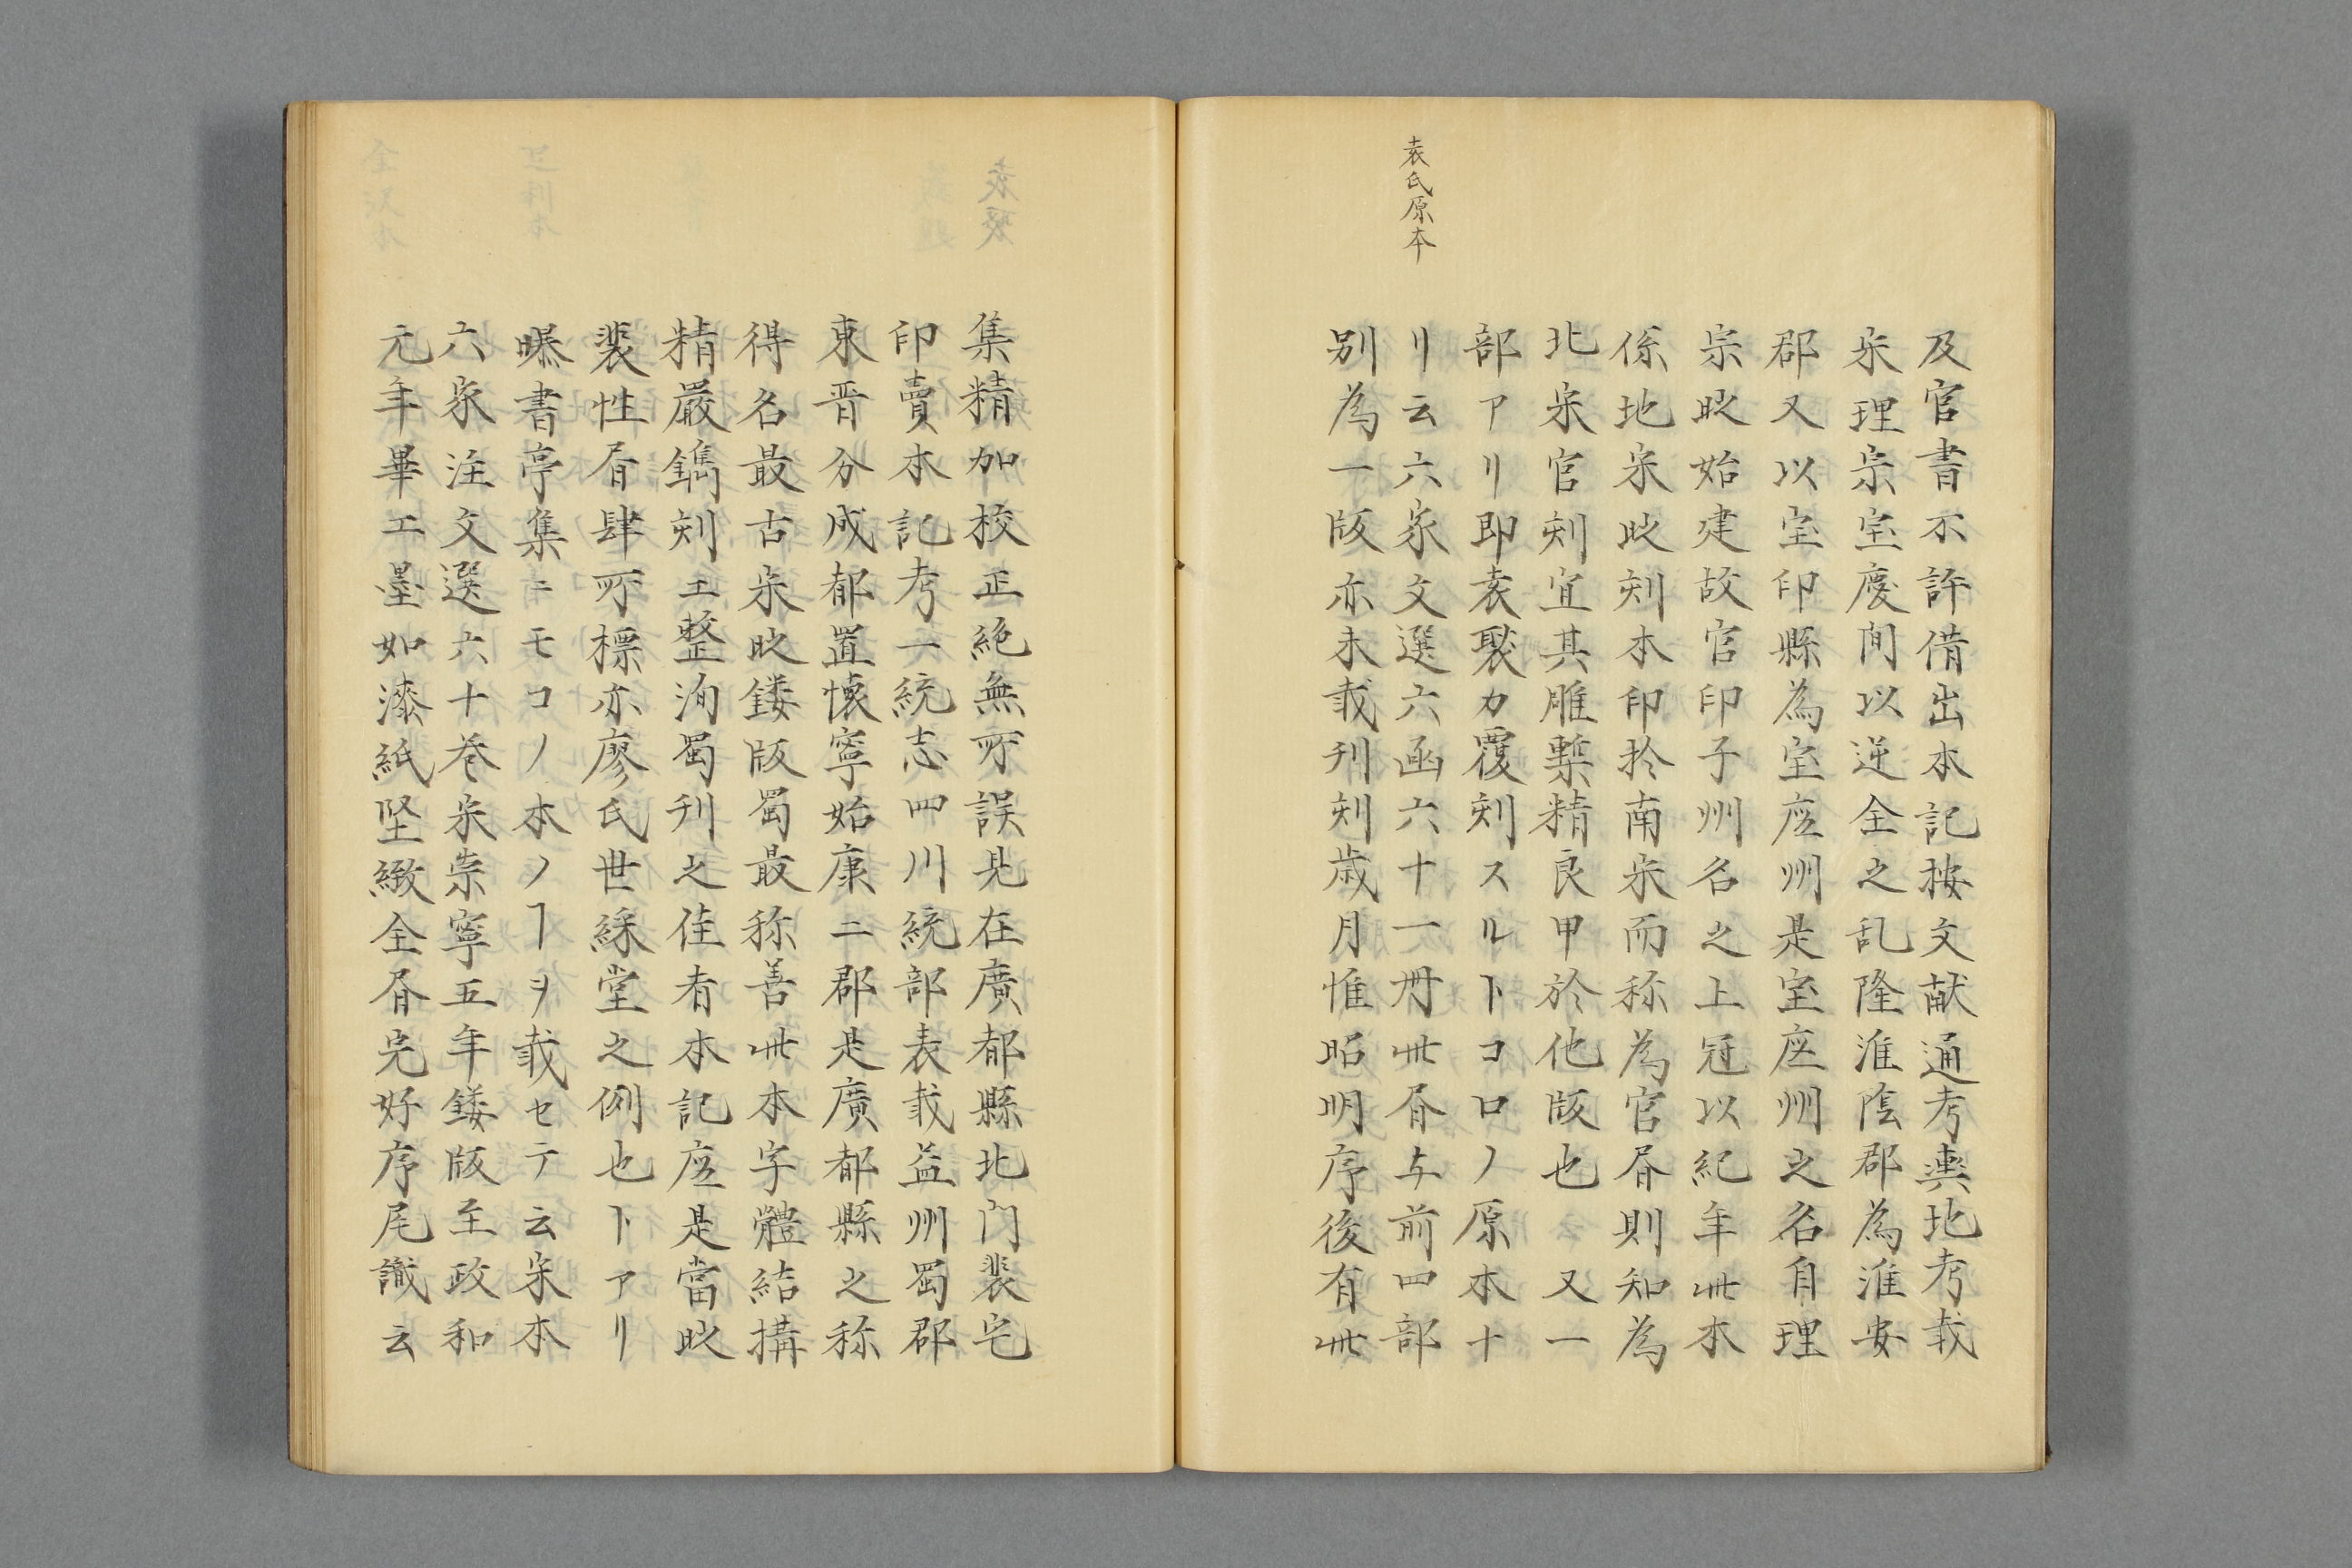 及官書不許借出本記按文献通考輿地考載
宋理宗宝慶間以逆全之乱降淮陰郡為淮安
郡又以宝印縣為宝应州是宝应州之名自理
宗時始建故官印子州名之上冠以紀年此本
係北宋時刻本印於南宋而称為官書則知為
北宋官刻宜其雕槧精良甲於他版也又一
部アリ即袁褧カ覆刻スルトコロノ原本ナ
リ云六家文選六函六十一冊此書与前四部
別為一版亦未載刊刻歳月惟昭明序後有此
袁氏原本
集精加校正絶無所誤見在廣都縣北門裴宅
印賣本記考一統志四川統部表載益州蜀郡
東晋分成都置懐寧始康二郡是廣都縣之称
得名最古宋時鏤版蜀最称善此本字體結搆
精嚴鐫刻工整洵蜀刊之佳者本記应是當時
裴性書肆所標亦廖氏世綵堂之例也トアリ
曝書亭集ニモコノ本ノヿヲ載セテ云宋本
六家注文選六十巻宋崇寧五年鏤版至政和
元年畢工墨如漆紙堅緻全書完好序尾識云